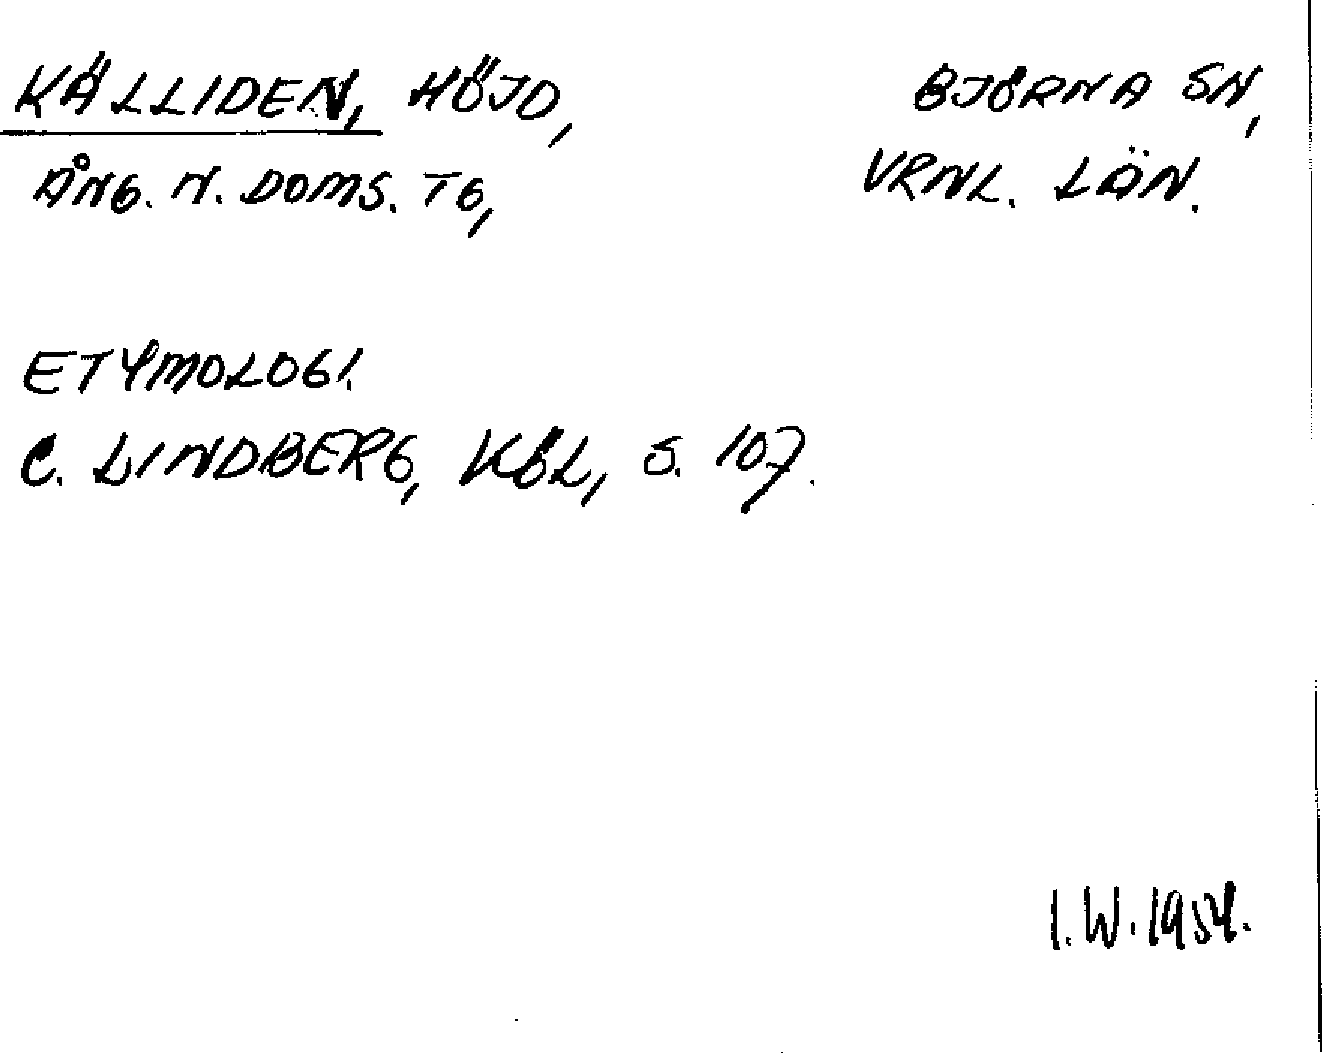 KÄLLIDEN, HÖJD, BJÖRNA SN,
ÅNG. N. DOMS. TG, VRNL. LÄN.
ETYMOLOGI.
C. LINDBERG, KBL, S. 107.
I.W. 1954.